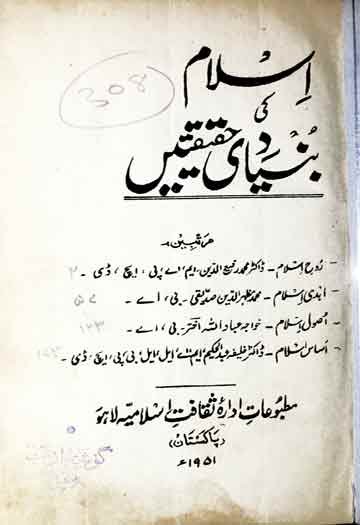 308
اسلام
کی
بُنیادی حقیقتیں
مرتبین:-
- رُوحِ اسلام - ڈاکٹر محمد رفیع الدین - ایم، اے، پی، ایچ، ڈی - ۲
- ابدی اسلام - محمد مظہر الدین صدیقی - بی، اے - ۷۵
- اصولِ اسلام - خواجہ عباد اللہ اختر - بی، اے - ۱۲۳
- اساسِ اسلام - ڈاکٹر خلیفہ عبدالحکیم ایم، اے، ایل، ایل، بی، پی، ایچ، ڈی -
مطبوعاتِ ادارۂ ثقافتِ اسلامیہ لاہور
(پاکستان)
۱۹۵۱ء